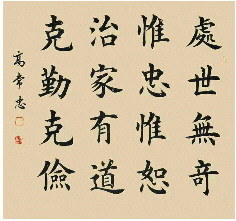 處世無奇
惟忠惟恕
治家有道
克勤克儉
高常忠